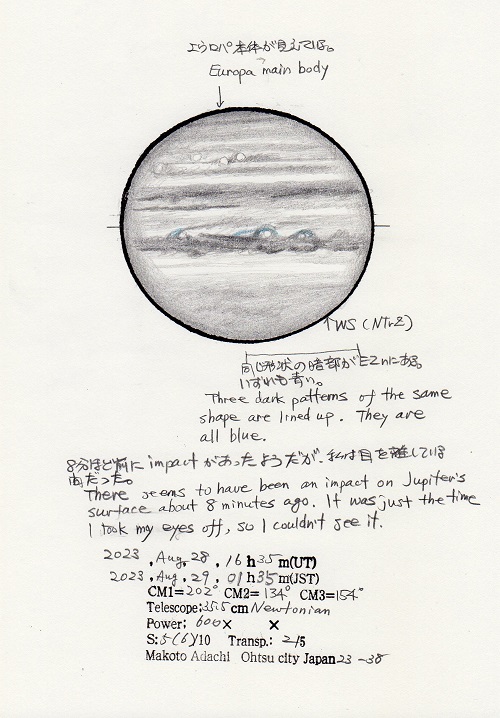 エウロパ本体が見えている。
Europa main body
↑WS (NTrZ)
同じ形状の暗部がEZnにある。
いずれも青い。
Three dark patterns of the same
shape are lined up. They are
all blue.
8分ほど前に impact があったようだが、私は目を離している
内だった。
There seems to have been an impact on Jupiter's
surface about 8 minutes ago. It was just the time
I took my eyes off, so I couldn't see it.
2023 , Aug, 28 , 16 h 35 m(UT)
2023 , Aug , 29 , 01 h 35 m(JST)
CM1=202° CM2= 134° CM3=154°
Telescope:35.5 cm Newtonian
Power; 600× ×
S:5(6)/10 Transp.: 2/5
Makoto Adachi Ohtsu city Japan 23-38